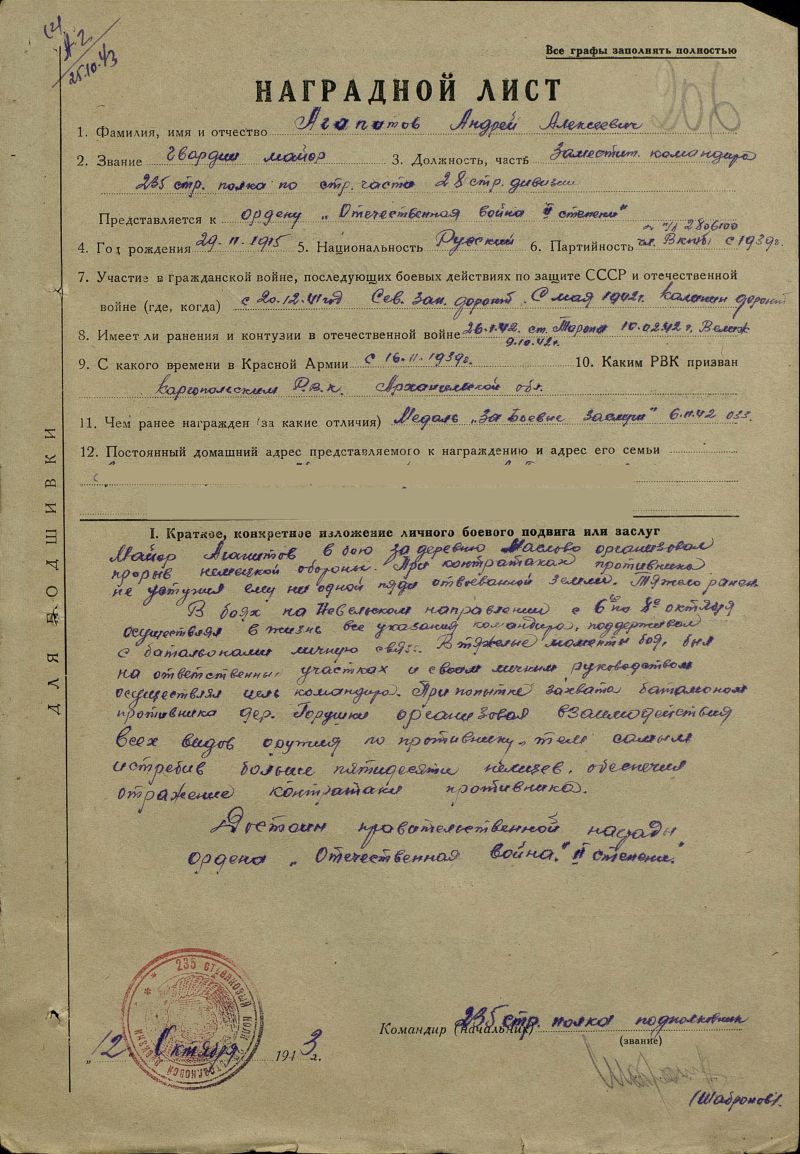 (2)
А-2
25.10.43
Все графы заполнять полностью
206
НАГРАДНОЙ ЛИСТ
1. Фамилия, имя и отчество Агапитов Андрей Алексеевич
2. Звание Гвардии майор 3. Должность, часть Заместит. командира
235 стр. полка по стр. части 28 стр. дивизии
Представляется к ордену „Отечественная война II степени"
п/б 2806100
4. Год рождения 29.11.1915 5. Национальность Русский 6. Партийность чл. ВКП(б) с 1939г.
7. Участие в гражданской войне, последующих боевых действиях по защите СССР и отечественной
войне (где, когда) с 20.12.41 год Сев. Зап. фронт. С мая 1942г. калинин фронт
8. Имеет ли ранения и контузии в отечественной войне 26.1.42 ст. Торопа 10.02.42 г. Велиж
9.10.42г.
9. С какого времени в Красной Армии с 16.11.1939г. 10. Каким РВК призван
каргопольским Р.В.К. Архангельской обл.
11. Чем ранее награжден (за какие отличия) Медаль „За боевые заслуги" 6.11.42
12. Постоянный домашний адрес представляемого к награждению и адрес его семьи
I. Краткое, конкретное изложение личного боевого подвига или заслуг
Майор Агапитов в бою за деревню Маслово организовал
прорыв немецкой обороны. При контратаках противника
не уступил ему ни одной пяди отвоеванной земли. Тяжело ранен
В боях на Невельском направлении с 6го по 8е октября
осуществлял в жизнь все указания командира, поддерживал
с батальонами личную связь. В тяжелые моменты боя, был
на ответственных участках и своим личным руководством
осуществлял цель командира. При попытке захвата батальоном
противника дер. Горушки организовал взаимодействия
всех видов оружия по противнику, тем самым
истребив больше пятидесяти немцев, обеспечил
отражение контратаки противника.
Достоин правительственной награды
ордена „Отечественная война" II степени."
ДЛЯ ПОДШИВКИ
235 СТРЕЛКОВЫЙ ПОЛК СТРЕЛКОВОЙ ДИВИЗИИ
Командир (начальник) 235 стр. полка подполковник
(звание)
„12" Октября 1943 г.
(Шабронов).